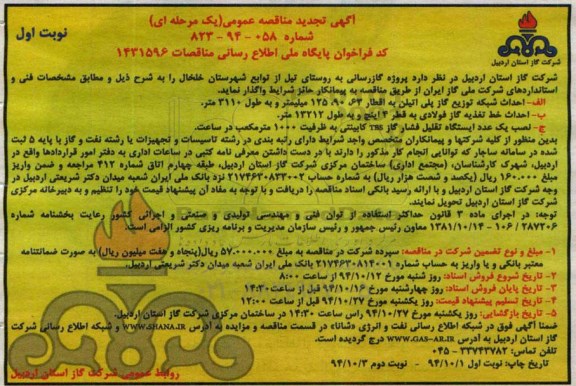 آگهی تجدید مناقصه عمومی(یک مرحله ای)
شماره ۰۵۸ - ۹۴ - ۸۲۳
کد فراخوان پایگاه ملی اطلاع رسانی مناقصات ۱۴۳۱۵۹۶
نوبت اول
شرکت گاز استان اردبیل
شرکت گاز استان اردبیل در نظر دارد پروژه گازرسانی به روستای تیل از توابع شهرستان خلخال را به شرح ذیل و مطابق مشخصات فنی و
استانداردهای شرکت ملی گاز ایران از طریق مناقصه به پیمانکار حائز شرایط واگذار نماید.
الف- احداث شبکه توزیع گاز پلی اتیلن به اقطار ۶۳، ۹۰، ۱۲۵ میلیمتر و به طول ۳۱۱۰ متر.
ب- احداث خط تغذیه گاز فولادی به قطر ۴ اینچ و به طول ۱۳۲۱۲ متر.
ج- نصب یک عدد ایستگاه تقلیل فشار گاز TBS کابینتی به ظرفیت ۱۰۰۰ مترمکعب در ساعت.
بدین منظور از کلیه شرکتها و پیمانکاران متخصص واجد شرایط دارای رتبه بندی در رشته تاسیسات و تجهیزات یا رشته نفت و گاز با پایه ۵ ثبت
شده در سامانه ساجار که توانایی انجام کار مذکور را دارند با در دست داشتن معرفی نامه کتبی در ساعات اداری به دفتر امور قراردادها واقع در
اردبیل، شهرک کارشناسان، (مجتمع اداری) ساختمان مرکزی شرکت گاز استان اردبیل، طبقه چهارم اتاق شماره ۴۱۲ مراجعه و ضمن واریز
مبلغ ۱۶۰.۰۰۰ ریال (یکصد و شصت هزار ریال) به شماره حساب ۲۱۷۴۶۳۰۸۳۳۰۰۲ نزد بانک ملی ایران شعبه میدان دکتر شریعتی اردبیل در
وجه شرکت گاز استان اردبیل و با ارائه رسید بانکی اسناد مناقصه را دریافت و با توجه به مفاد آن پیشنهاد قیمت خود را تنظیم و به دبیرخانه مرکزی
شرکت گاز استان اردبیل تحویل نمایند.
توجه: در اجرای ماده ۳ قانون حداکثر استفاده از توان فنی و مهندسی تولیدی و صنعتی و اجرائی کشور رعایت بخشنامه شماره
۱۰۶ / ۲۸۷۲۰۶ - ۱۳۸۱/۱۰/۱۴ معاون رئیس جمهور و رئیس سازمان مدیریت و برنامه ریزی کشور الزامی است.
۱- مبلغ و نوع تضمین شرکت در مناقصه: سپرده شرکت در مناقصه به مبلغ ۵۷.۰۰۰.۰۰۰ ریال(پنجاه و هفت میلیون ریال) به صورت ضمانتنامه
معتبر بانکی و یا واریز به حساب شماره ۲۱۷۴۶۲۰۸۱۴۰۰۱ بانک ملی ایران شعبه میدان دکتر شریعتی اردبیل.
۲- تاریخ شروع فروش اسناد: روز شنبه مورخ ۹۴/۱۰/۱۲ از ساعت ۸:۰۰
۳- تاریخ پایان فروش اسناد: روز چهارشنبه مورخ ۹۴/۱۰/۱۶ قبل از ساعت ۱۴:۳۰
۴- تاریخ تسلیم پیشنهاد قیمت: روز یکشنبه مورخ ۹۴/۱۰/۲۷ قبل از ساعت ۱۲:۰۰
۵- تاریخ بازگشایی: روز یکشنبه مورخ ۹۴/۱۰/۲۷ راس ساعت ۱۴:۳۰ در ساختمان مرکزی شرکت گاز استان اردبیل.
ضمنا آگهی فوق در شبکه اطلاع رسانی نفت و انرژی «شانا» در قسمت مناقصه و مزایده به آدرس WWW.SHANA.IR و شبکه اطلاع رسانی شرکت
گاز استان اردبیل به آدرس WWW.GAS-AR.IR درج گردیده است.
تلفن تماس: ۳۳۷۴۳۷۸۲ - ۰۴۵
تاریخ چاپ: نوبت اول ۹۴/۱۰/۱ - نوبت دوم ۹۴/۱۰/۳
روابط عمومی شرکت گاز استان اردبیل